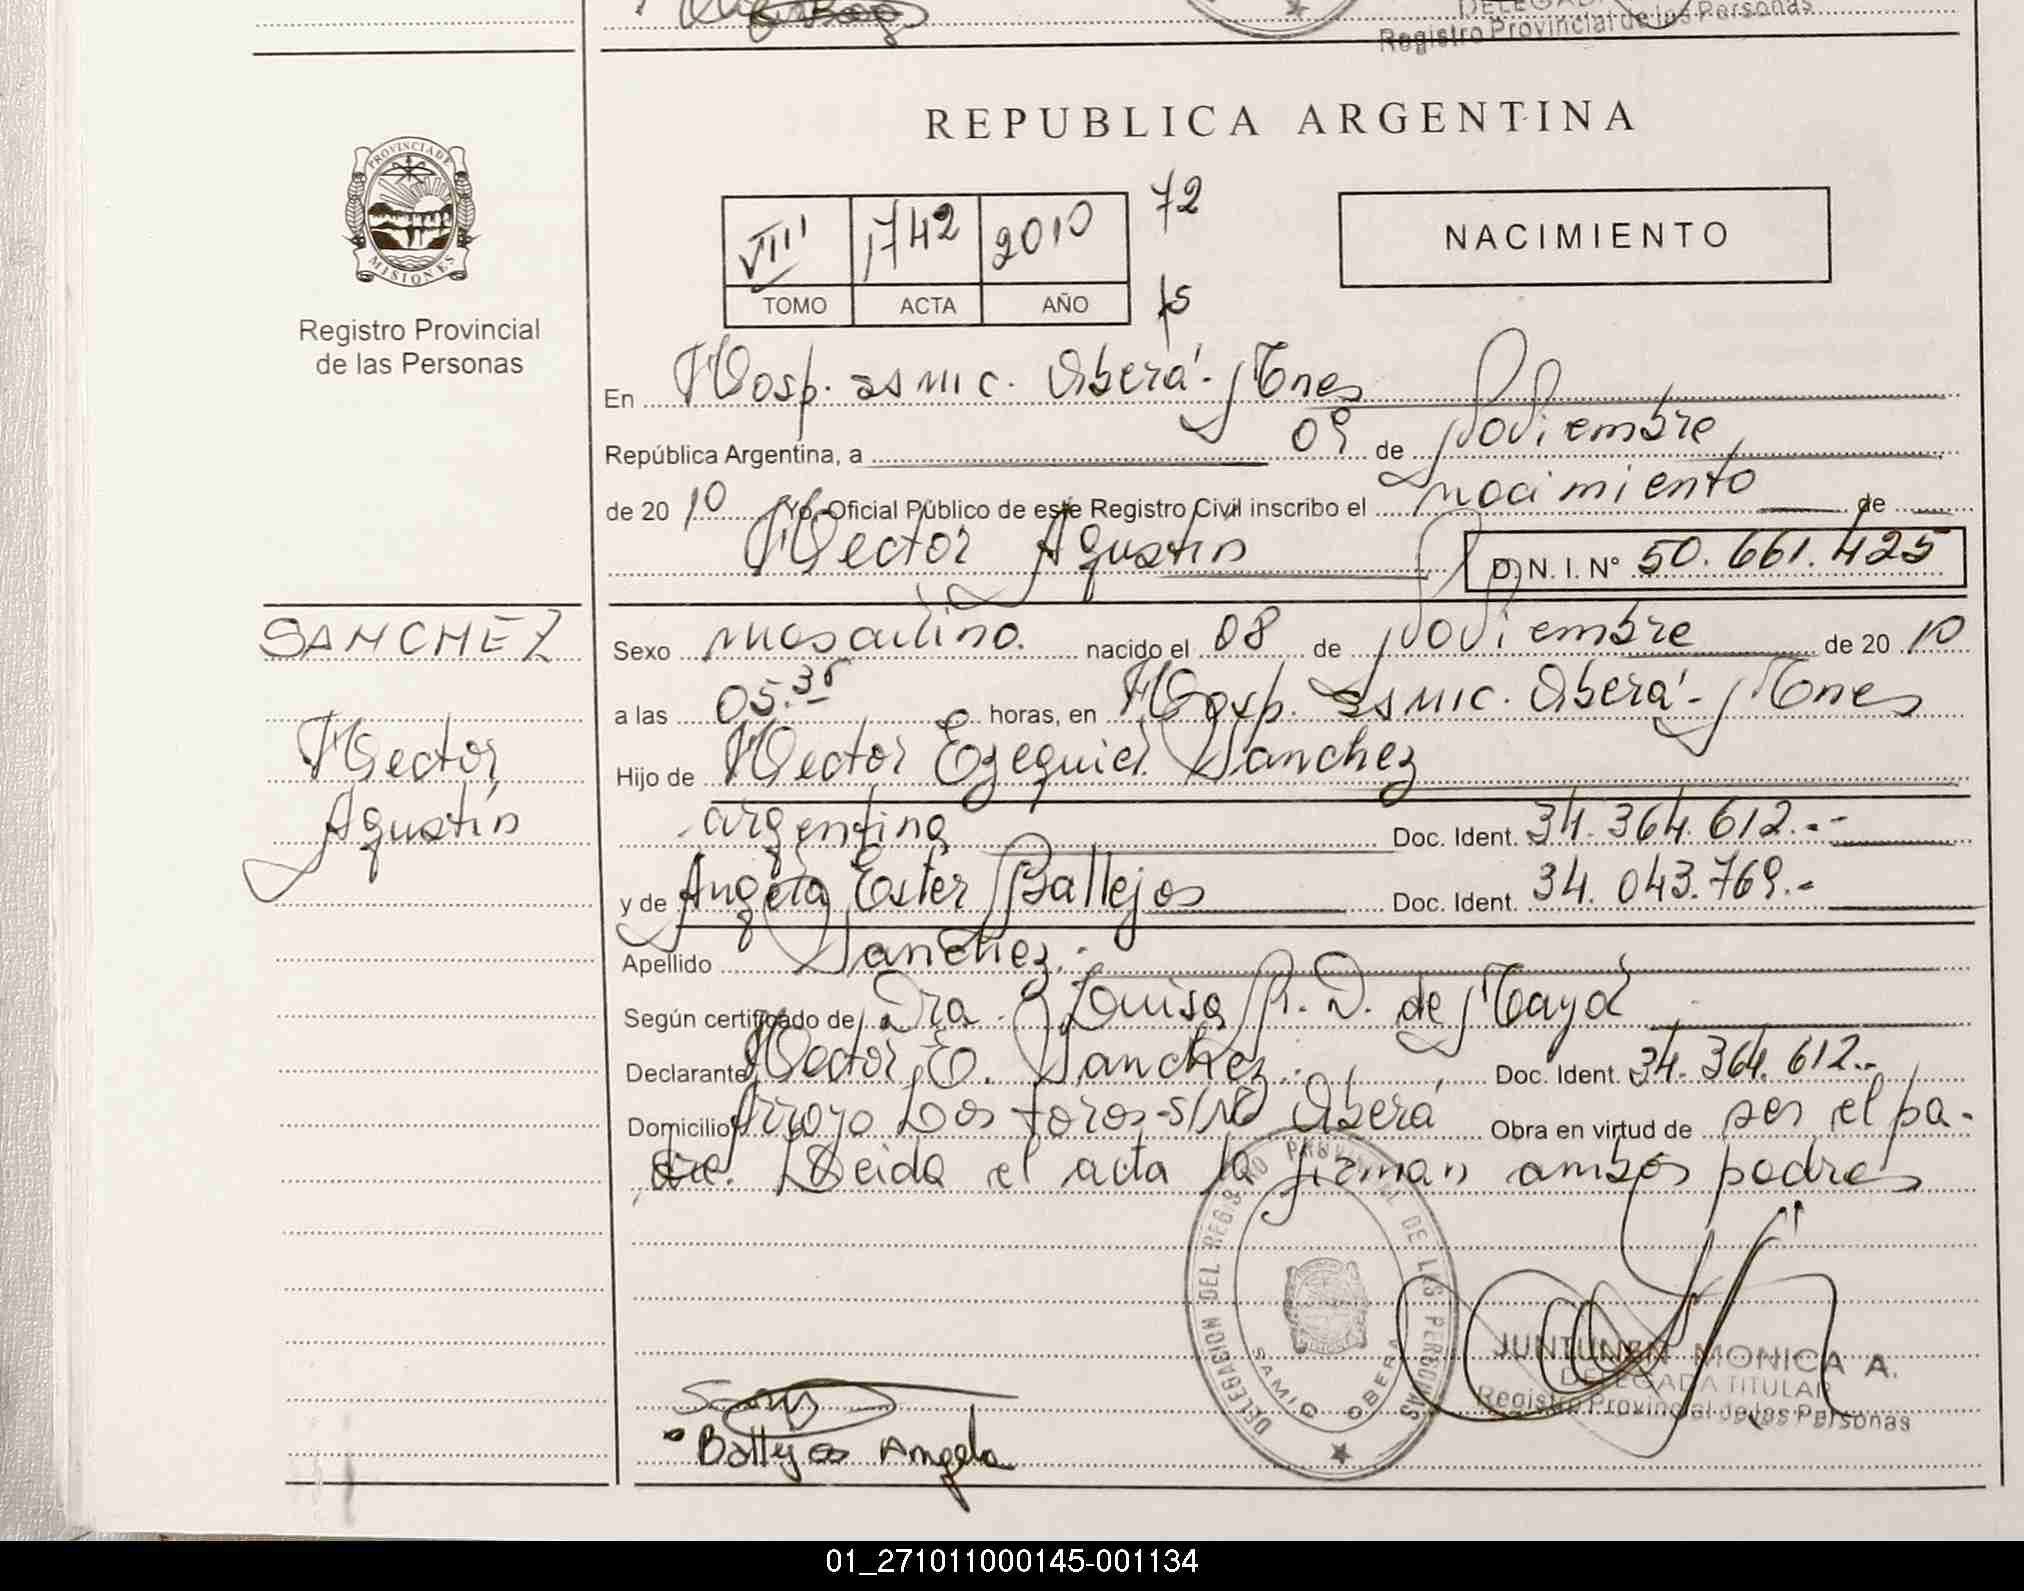 DELEGADA
Registro Provincial de las Personas
REPUBLICA ARGENTINA
PROVINCIA DE
MISIONES
Registro Provincial
de las Personas
VIII 1742 2010 72
TOMO ACTA AÑO 75
NACIMIENTO
En Hosp. SAMIC. Oberá - Mnes
República Argentina, a 09 de Noviembre
de 2010 Yo, Oficial Público de este Registro Civil inscribo el nacimiento de
Hector Agustin D.N.I. N° 50.661.425
SANCHEZ
Hector
Agustín
Sexo masculino. nacido el 08 de Noviembre de 2010
a las 05.35 horas, en Hosp. SAMIC. Oberá - Mnes
Hijo de Hector Ezequiel Sanchez
argentina Doc. Ident. 34.364.612.-
y de Angela Ester Ballejos Doc. Ident. 34.043.769.-
Apellido Sanchez.-
Según certificado de Dra. Louisa R. D. de Mayol
Declarante Hector E. Sanchez.- Doc. Ident. 34.364.612.-
Domicilio Arroyo Los toros-S/Nº Oberá Obra en virtud de ser el pa-
dre. Leida el acta la firman ambos padres
DELEGACION DEL REGISTRO PROVINCIAL DE LAS PERSONAS
SAMIC OBERA
JUNTUNEN MONICA A.
DELEGADA TITULAR
Registro Provincial de las Personas
Ballejos Angela
01_271011000145-001134